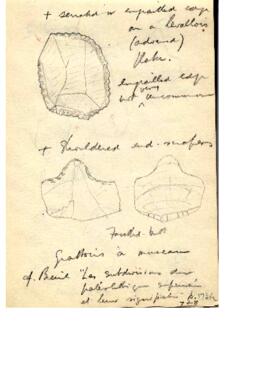 + serrated or engrailed edge
on a Levallois
(advanced)
flake.
engrailed edge
very
but uncommon
+ Shouldered end-scrapers
Grattoirs à museau
cf. Breuil "Les subdivisions du
paléolithique supérieur
et leur signification" p.